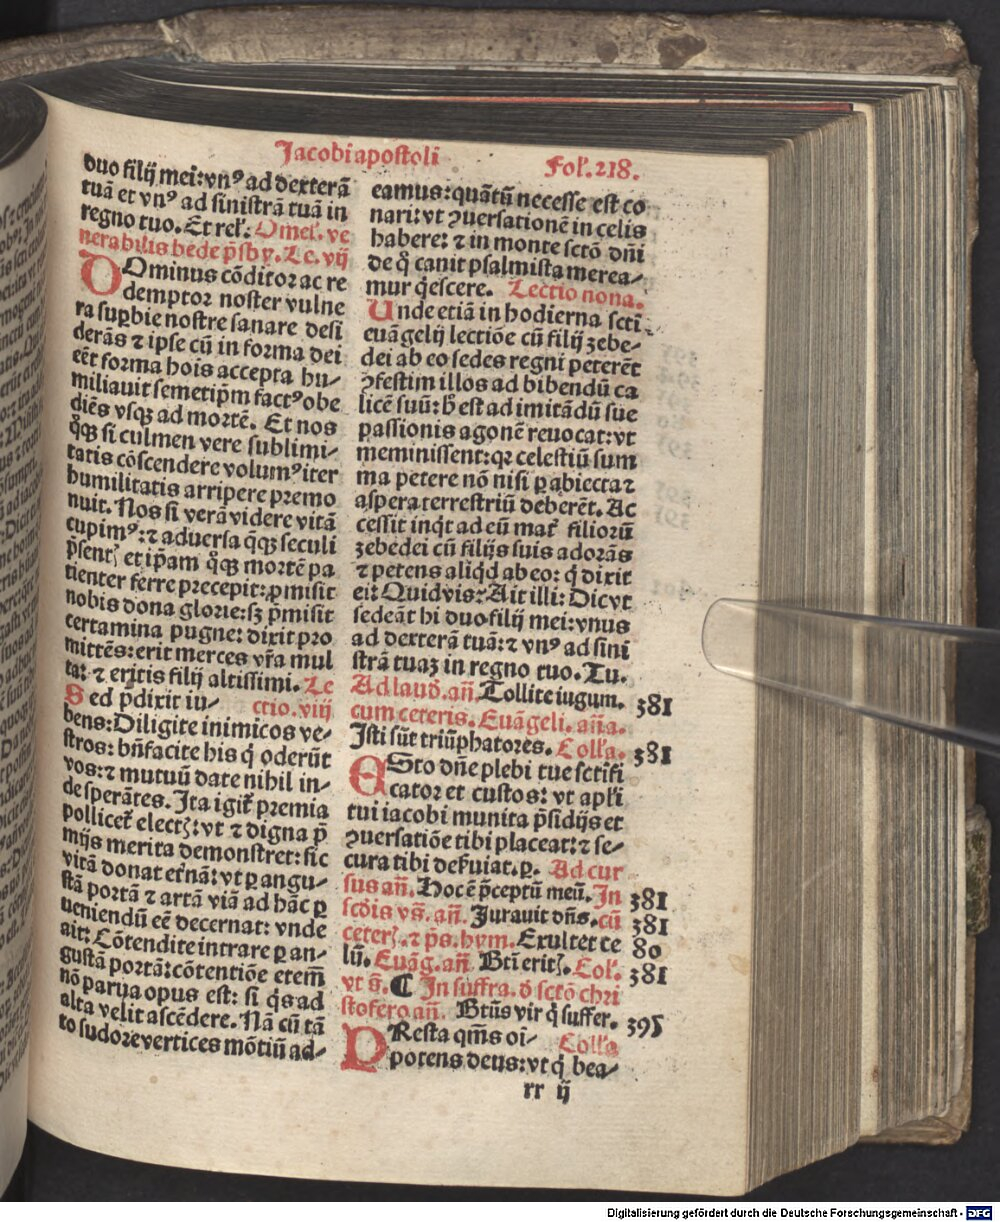 Jacobi apostoli
Fol. 218.
duo filij mei: vnꝰ ad dexterā
tuā et vnꝰ ad sinistrā tuā in
regno tuo. Et rel̄. Omel̄. ve
nerabilis bede p̄sby. Lc. vij
DOminus cōditor ac re
demptor noster vulne
ra suꝑbie nostre sanare desi
derās ⁊ ipse cū in forma dei
eēt forma hoīs accepta hu⸗
miliauit semetip̄m factꝰ obe
diēs vsqꝫ ad mortē. Et nos
q̊qꝫ si culmen vere sublimi⸗
tatis cōscendere volumꝰ iter
humilitatis arripere premo
nuit. Nos si verā videre vitā
cupimꝰ: ⁊ aduersa q̊qꝫ seculi
p̄sentꝭ et ip̄am q̊qꝫ mortē pa
tienter ferre precepit: ꝓmisit
nobis dona glorie: sꝫ p̄misit
certamina pugne: dixit pro
mittēs: erit merces vr̄a mul
ta: ⁊ eritis filij altissimi. Le
Sed p̄dixit iu⸗ ctio. viij
bens: Diligite inimicos ve⸗
stros: bn̄facite his q̇ oderūt
vos: ⁊ mutuū date nihil in⸗
de sperātes. Ita igit̄ premia
pollicet̄ electꝭ: vt ⁊ digna p̄
mijs merita demonstret: sic
vitā donat et̄nā: vt ꝑ angu⸗
stā portā ⁊ artā viā ad hāc ꝑ
ueniendū eē decernat: vnde
ait: Cōtendite intrare ꝑ an⸗
gustā portā: cōtentiōe etem̄
nō parua opus est: si q̇s ad
alta velit ascēdere. Nā cū tā
to sudore vertices mōtiū ad⸗
eamus: quātū necesse est co
nari: vt ꝯuersationē in celis
habere: ⁊ in monte sctō dn̄i
de q̊ canit psalmista merea⸗
mur q̇escere. Lectio nona.
Unde etiā in hodierna scti
euāgelij lectiōe cū filij zebe⸗
dei ab eo sedes regni peterēt
ꝯfestim illos ad bibendū ca
licē suū: h̄ est ad imitādū sue
passionis agonē reuocat: vt
meminissent: qꝛ celestiū sum
ma petere nō nisi ꝑ abiecta ⁊
aspera terrestriū deberēt. Ac
cessit inq̇t ad eū mat̄ filiorū
zebedei cū filijs suis adorās
⁊ petens aliq̇d ab eo: q̇ dixit
ei: Quid vis: Ait illi: Dic vt
sedeāt hi duo filij mei: vnus
ad dexterā tuā: ⁊ vnꝰ ad sini
strā tuaꝫ in regno tuo. Tu.
Ad laud̄. añ. Tollite iugum. 381
cum ceteris. Euāgeli. añā.
Isti sūt triūphatores. Coll̄a. 381
ESto dn̄e plebi tue sctīfi
cator et custos: vt apl̄i
tui iacobi munita p̄sidijs et
ꝯuersatiōe tibi placeat: ⁊ se⸗
cura tibi des̄uiat. ꝑ. Ad cur
sus añ. Hoc ē p̄ceptū meū. In 381
scd̄is vs̄. añ. Jurauit dn̄s. cū 381
ceterꝭ. ⁊ ps̄. hym. Exultet ce 80
lū. Euāg. añ Btī eritꝭ. Col̄. 381
vt s̄. ¶ In suffra. d̄ sctō chri
stofero añ. Btūs vir q̇ suffer. 395
PResta qm̄s oī⸗ Coll̄a
potens deus: vt q̇ bea⸗
rr ij
Digitalisierung gefördert durch die Deutsche Forschungsgemeinschaft - DFG